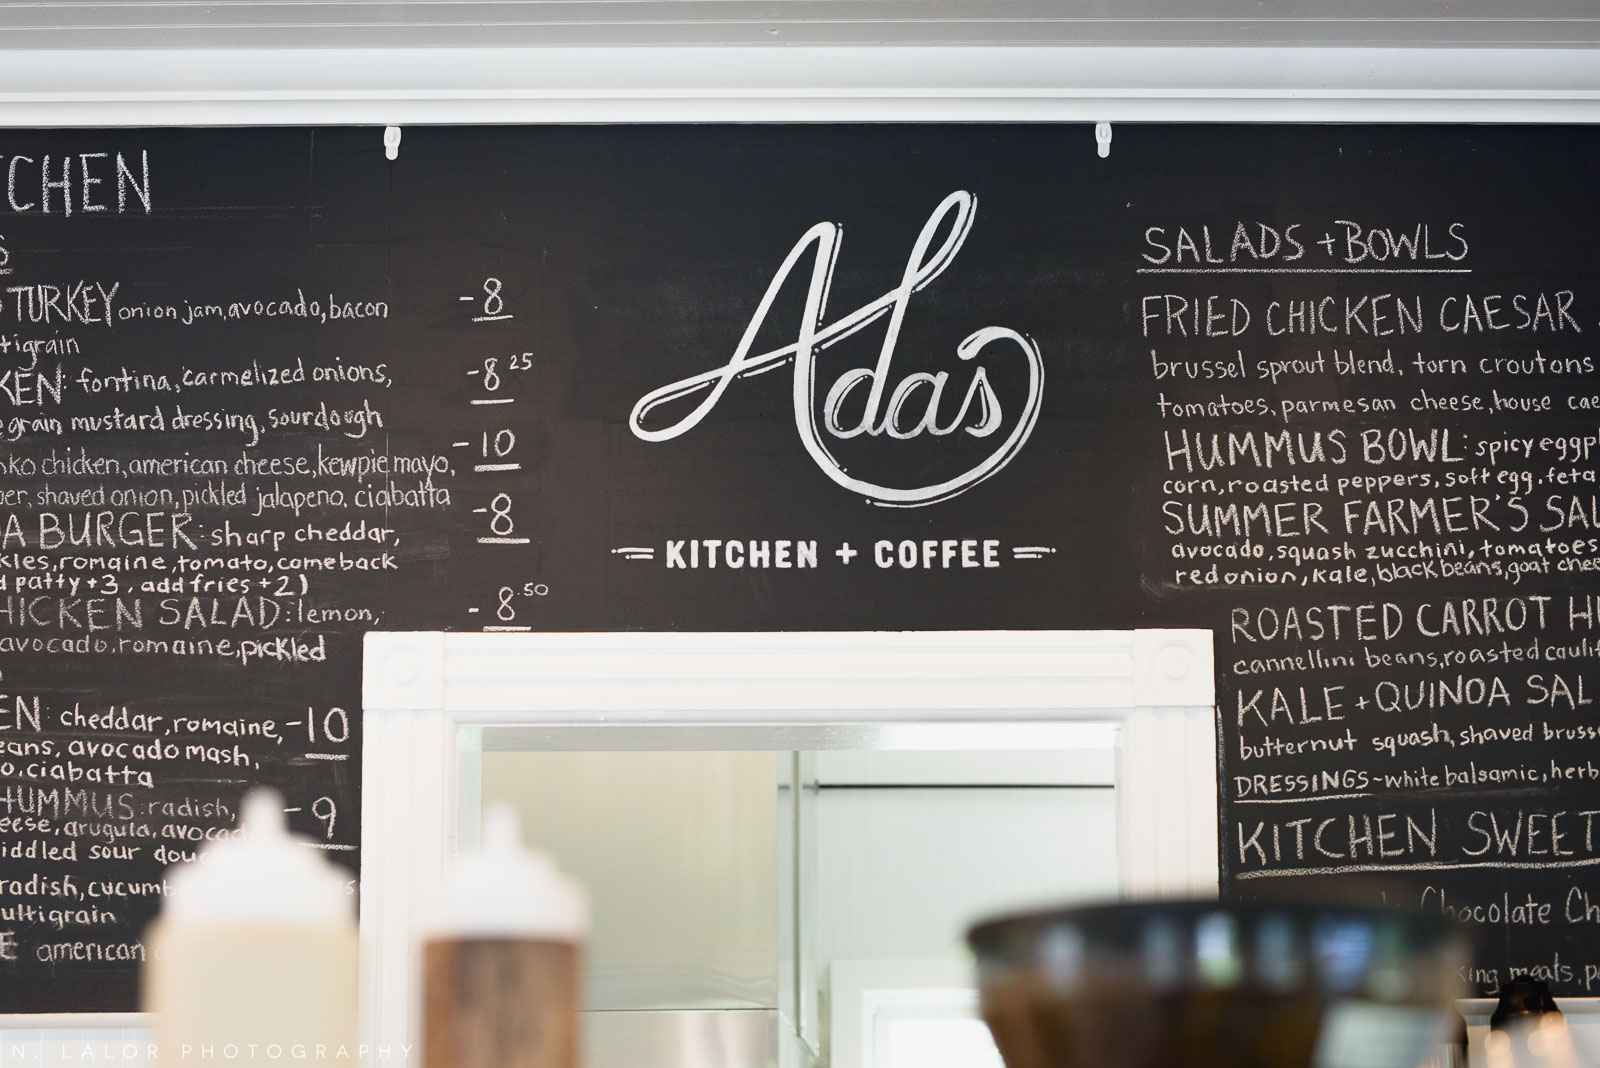 TCHEN
TURKEY onion jam, avocado, bacon -8
tigrain
KEN: fontina, carmelized onions, -8 25
grain mustard dressing, sourdough
nko chicken, american cheese, kewpie mayo, -10
er, shaved onion, pickled jalapeno, ciabatta
A BURGER: sharp cheddar, -8
kles, romaine, tomato, comeback
d patty +3, add fries +2)
HICKEN SALAD: lemon, -8.50
avocado, romaine, pickled
EN: cheddar, romaine, -10
eans, avocado mash,
o, ciabatta
HUMMUS: radish, -9
eese, arugula, avocad
iddled sour doug
radish, cucumb
ultigrain
E american
Adas
KITCHEN + COFFEE
SALADS + BOWLS
FRIED CHICKEN CAESAR
brussel sprout blend, torn croutons
tomatoes, parmesan cheese, house cae
HUMMUS BOWL: spicy eggpl
corn, roasted peppers, soft egg, feta
SUMMER FARMER'S SAL
avocado, squash zucchini, tomatoes
red onion, kale, black beans, goat chee
ROASTED CARROT HU
cannellini beans, roasted caulif
KALE + QUINOA SAL
butternut squash, shaved brusse
DRESSINGS~white balsamic, herb
KITCHEN SWEET
Chocolate Ch
king meats, pa
N. LALOR PHOTOGRAPHY